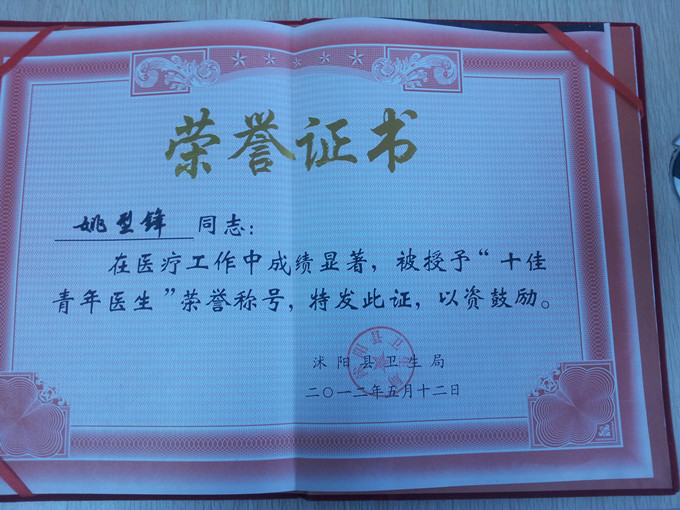 荣誉证书
姚型锋 同志：
在医疗工作中成绩显著，被授予“十佳
青年医生”荣誉称号，特发此证，以资鼓励。
沭阳县卫生局
二〇一二年五月十二日
沭阳县卫生局